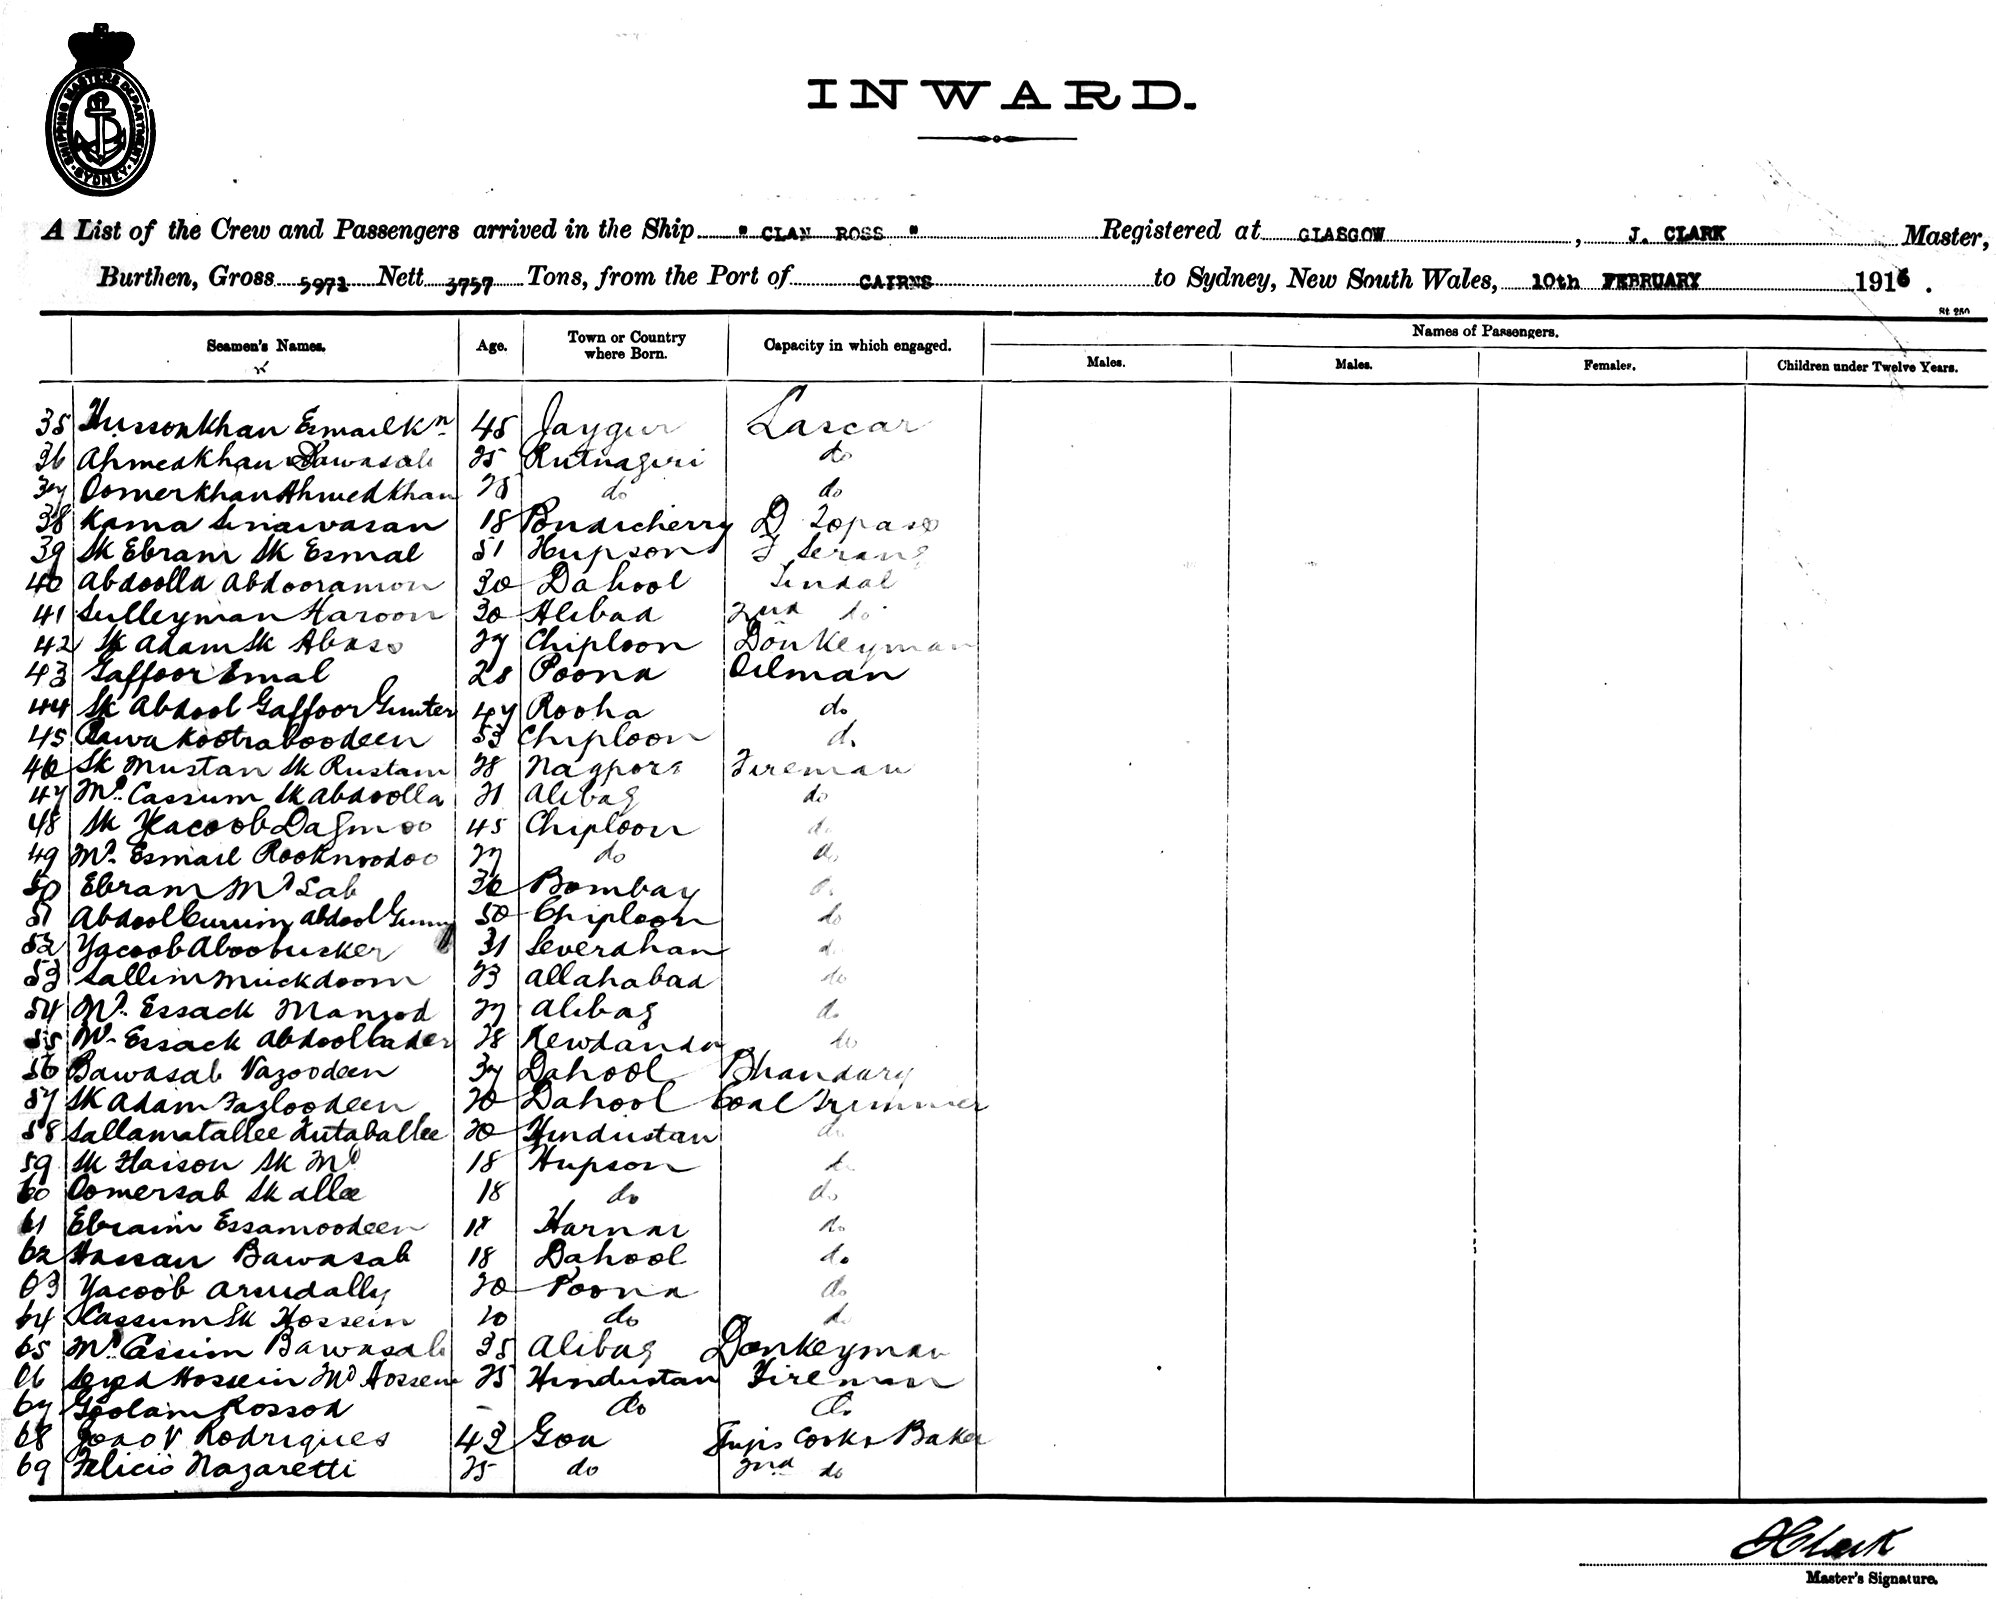 SHIPPING MASTERS DEPARTMENT
SYDNEY
INWARD.
A List of the Crew and Passengers arrived in the Ship "CLAN ROSS" Registered at GLASGOW, J. CLARK Master,
Burthen, Gross 5971 Nett 3757 Tons, from the Port of CAIRNS to Sydney, New South Wales, 10th FEBRUARY 1916.
St 250
Names of Passengers.
Seamen's Names. Age. Town or Country where Born. Capacity in which engaged. Males. Males. Females. Children under Twelve Years.
35 Hussonkhan Esmailkn 45 Jaygur Lascar
36 Ahmedkhan Bawasab 25 Rutnagiri do
37 Oomerkhan Ahmedkhan 28 do do
38 Kama Sinawasan 18 Pondicherry D Topass
39 Sk Ebram Sk Esmal 51 Hupson F Serang
40 Abdoolla Abdooramon 30 Dahool Tindal
41 Sulleyman Haroon 30 Alibad 2nd do
42 Sk Adam Sk Abass 27 Chiploon Donkeyman
43 Gaffoor Emal 28 Poona Oilman
44 Sk Abdool Gaffoor Gunter 47 Rooha do
45 Bawa Kootraboodeen 53 Chiploon do
46 Sk Mustan Sk Rustam 28 Nagpore Fireman
47 Md. Cassum Sk Abdoolla 21 Alibag do
48 Sk Yacoob Dagmoo 45 Chiploon do
49 Md. Esmail Rooknoodoo 27 do do
50 Ebram Md Sab 36 Bombay do
51 Abdool Currim Abdool Gunny 50 Chiploon do
52 Yacoob Aboobucker 31 Severdhan do
53 Sallim Muckdoom 23 Allahabad do
54 Md. Essack Mamod 27 Alibag do
55 Md. Essack Abdool Cader 28 Rewdanda do
56 Bawasab Vazoodeen 37 Dahool Bhandary
57 Sk Adam Fazloodeen 20 Dahool Coal Trimmer
58 Sallamatallee Futaballee 20 Hindustan do
59 Sk Haison Sk Md 18 Hupson do
60 Oomersab Sk Allee 18 do do
61 Ebraim Essamoodeen 18 Harnai do
62 Hassan Bawasab 18 Dahool do
63 Yacoob 20 Poona do
64 Cassum Sk Hossein 20 do do
65 Md. Cassim Bawasab 35 Alibag Donkeyman
66 Seyed Hossein Md Hossein 25 Hindustan Fireman
67 Goolam Rossod - do do
68 Joao V Rodrigues 43 Goa Cook & Baker
69 Felicio Nazaretti 25 do 2nd do
J Clark
Master's Signature.